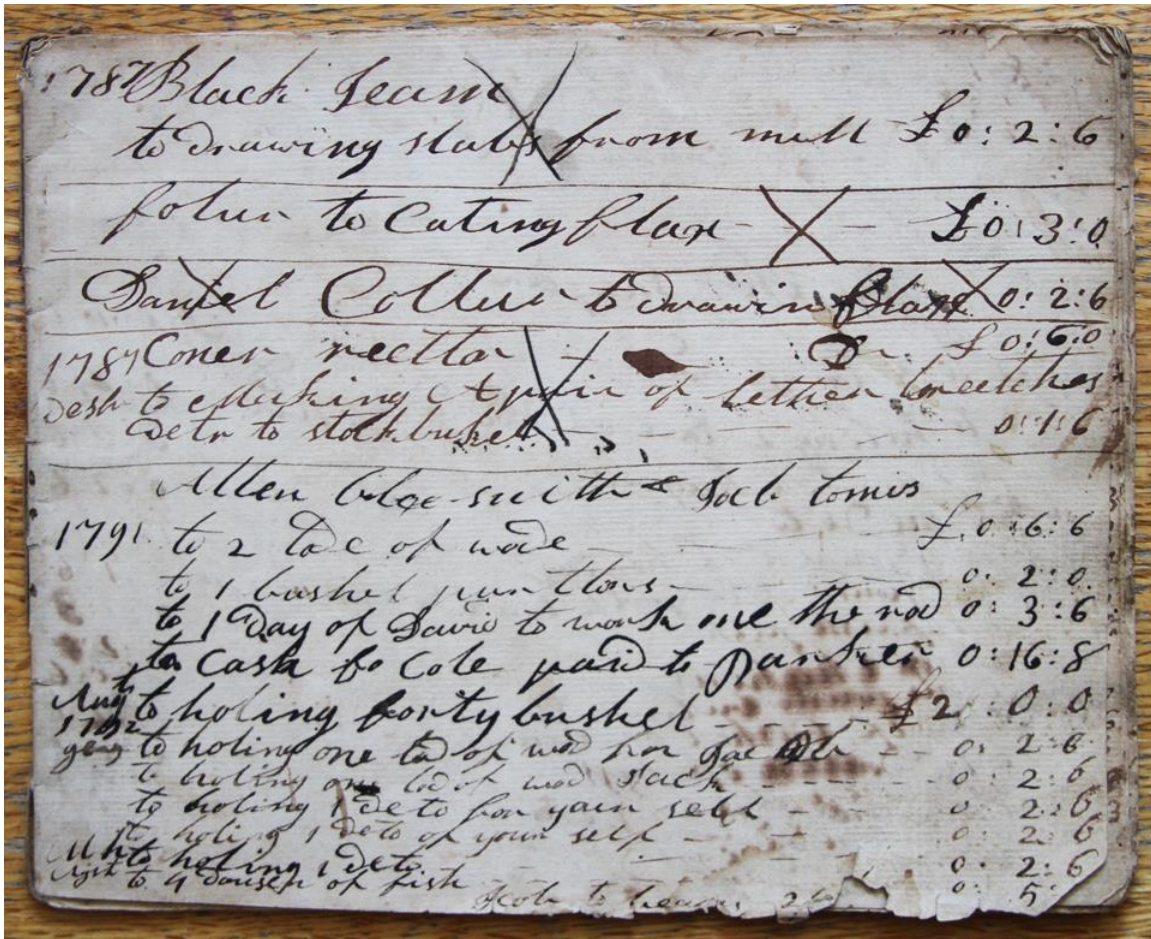 1787 Black Seam
to drawing slabs from mill £0:2:6
to Cuting flax £0:3:0
Daniel Collur to drawin flax 0:2:6
1787 Coner Dr. £0:6:0
to Making A pair of lether breetches
Detr to stock 0:1:6
Allen & Jocb tomis
1791 to 2 lode of wode £0:6:6
to 1 bushel 0:2:0
to 1 Day of David to work one the rod 0:3:6
to Cash fo Cole paid to Parker 0:16:8
Augt to holing forty bushel £2:0:0
1792 to holing one lod of wod for Jacob 0:2:6
to holing one lod of wod Jack 0:2:6
to holing 1 deto for yain self 0:2:6
to holing 1 deto of your self 0:2:6
to holing 1 deto 0:2:6
to 4 dousen of fish 0:5:
to